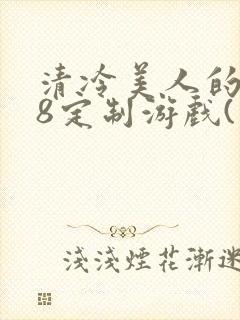 清冷美人的
8定制游戏(
浅淺煙花漸迷